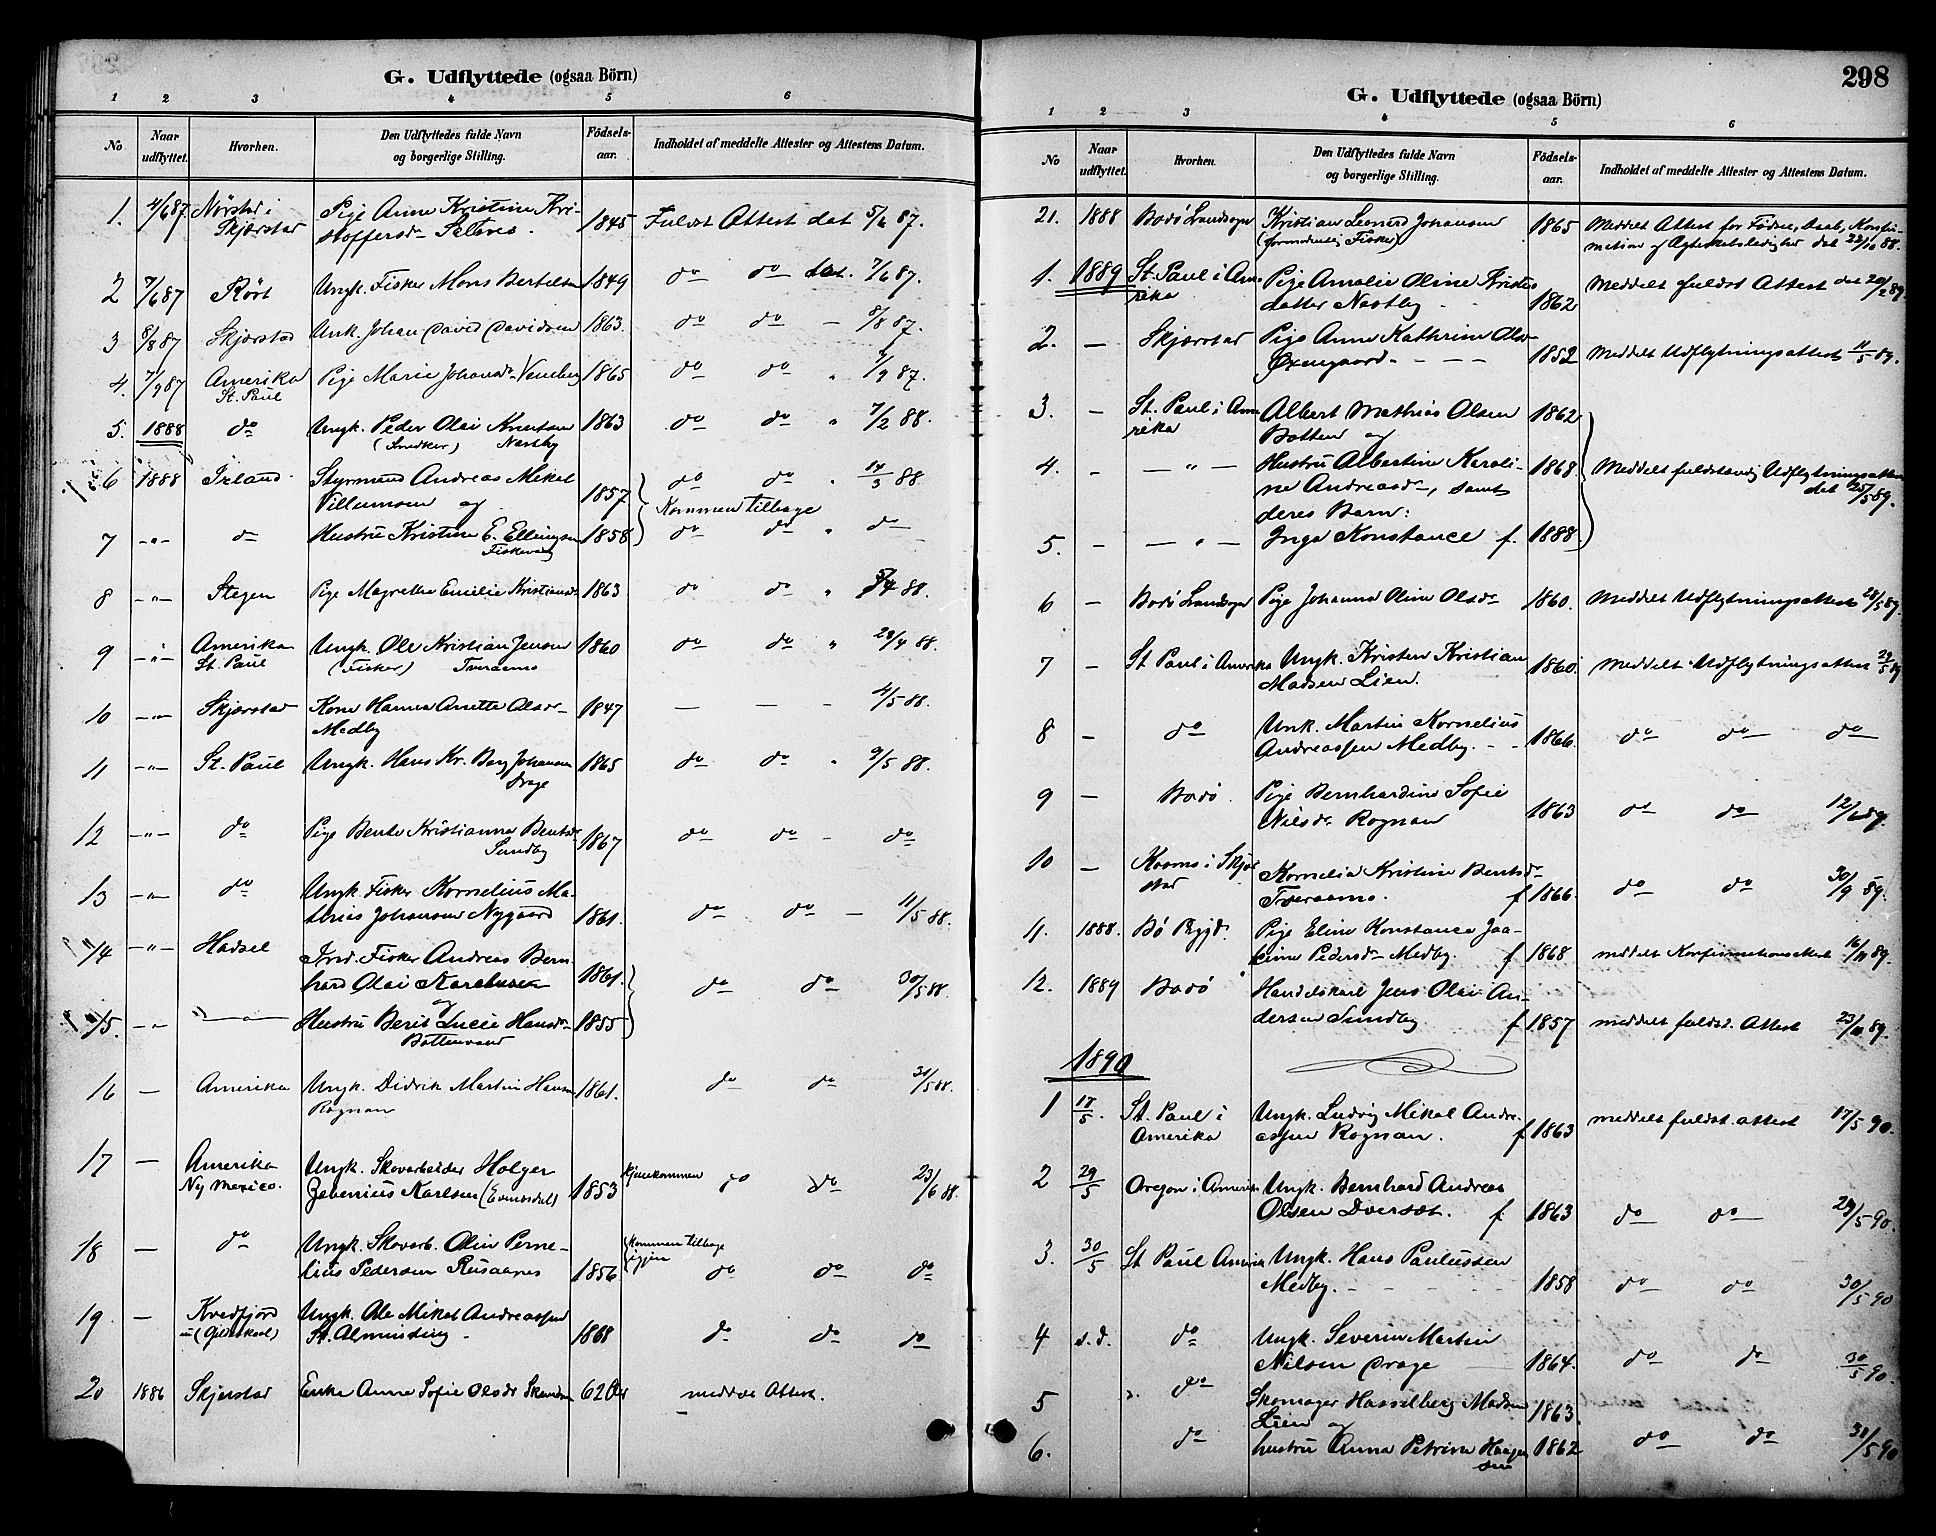 G. Udflyttede (ogsaa Börn)
1 2 3 4 5 6
No Naar udflyttet. Hvorhen. Den Udflyttedes fulde Navn og borgerlige Stilling. Födsels-aar. Indholdet af meddelte Attester og Attestens Datum.
1. 4/6 87 Nørstad i Pige Anne Kristine Kri-
Skjærstad stoffersd 1845 Fuldst Attest dat 5/6 87.
2 7/6 87 Ungk. Fisker Mons Bertelsen 1849 do do dat. 7/6 87.
3 8/8 87 Skjærstad Unk. Johan David Davidsen 1863. do do – 8/8 87.
4. 7/9 87 Amerika Pige Marie Johansd 1865 do do " 7/9 87.
St. Paul
5. 1888 do Ungk. Peder Olai Knutsen 1863 do do " 7/2 88.
(Snedker) Nestby
6 1888 Styrmand Andreas Mikal do do " 14/3 88
Villumsen og 1857 Kommen tilbage
7 –"– do Hustru Kristine E. Ellingsen 1858 do do " do
8 –"– Stegen Pige Magrethe Emilie Kristiansd 1863 do do " 88.
9 –"– Amerika Ungk. Ole Kristian Jensen 1860 do do " 28/4 88.
St. Paul (Fisker)
10 –"– Skjærstad Kone Hanna Anette Olsd 1847 – – – 4/5 88.
Medby
11 –"– St. Paul Ungk. Hans Kr. Berg Johansen 1865 do do " 9/5 88.
Drage
12 –"– do Pige Bente Kristianna Bentsd 1867 do do – do
Sundby
13 –"– do Ungk. Fisker Kornelius Ma-
thias Johansen Nygaard 1861. do do – 11/5 88.
14 –"– Hadsel Fisker Andreas Bern-
hard Olai 1861. do do 30/5 88.
og
15. –"– –"– Hustru Berit Lucie Hansd 1855
Bottenvand
16 – Amerika Ungk. Didrik Martin Hansen 1861. do do 30/5 88.
Rognan
17 – Amerika Ungk. Skovarbeider Holger
Ny Mexico. Karlsen (Evensdal) 1853 hjemkommen do do 23/6 88.
18 – do Ungk. Skovarb. Olin Perne- kommen tilbage
lius Pedersen Rusaanes 1856 igjen do do do
19 – Kvedfjord Ungk. Ole Mikal Andreassen
(Gildeskaal) St. Almending 1868 do do do
20 1886 Skjerstad Enke Anne Sofie Olsdr 62 Aar meddelt Attest.
298
G. Udflyttede (ogsaa Börn)
1 2 3 4 5 6
No Naar udflyttet. Hvorhen. Den Udflyttedes fulde Navn og borgerlige Stilling. Födsels-aar. Indholdet af meddelte Attester og Attestens Datum.
21. 1888 Bodø Landsogn Kristian Leonard Johansen 1865 Meddelt Attest for Fødsel, Daab, Konfir-
(formodentlig Fisker) mation og Ægteskabsledighed dat 22/10 88.
1. 1889 St. Paul i Ame- Pige Amalie Oline Kristens
rika datter Nestby 1862 Meddelt fuldst Attest dat 20/2 89.
2. – Skjærstad Pige Anne Kathrine Olsd
Øxengaard – – – 1852 Meddelt Udflytningsattest 11/5 89.
3. – St. Paul i Ame- Albert Mathias Olsen 1862
rika Botten og
4. – – " – Hustru Albertine Karoli- 1868 Meddelt fuldstændig Udflytningsattest
ne Andreasd, samt dat 25/5 89.
deres Barn:
5. – – " – Inga Konstance f. 1888
6 – Bodø Landsogn Pige Johanna Oline Olsd 1860. Meddelt Udflytningsattest 28/5 89.
7 – St. Paul i Amerika Ungk. Kristen Kristian 1860. Meddelt Udflytningsattest 29/5 89
Madsen Lien.
8 – do Unk. Martin Kornelius
Andreassen Medby. 1866 do do do
9 – Bodø. Pige Bernhardine Sofie
Nilsd Rognan 1863 do do 12/6 89.
10 – i Skjer- Kornelia Kristine Bentsd
stad f 1866 do do 30/9 89.
11. 1888. Bø Pige Eline Konstance Joa-
kime Pedersd Medby. f 1868 meddelt Konfirmationsattest 16/11 89.
12. 1889 Bodø Handelskarl Jens Olai An-
dersen Sundby f 1857 meddelt fuldst. Attest 23/11 89.
1890
1 17/5. St. Paul i Ungk. Ludvig Mikal Andre-
Amerika assen Rognan. f 1863 meddelt fuldst. attest 17/5 90.
2 29/5 Oregon i Amerika Ungk. Bernhard Andreas
Olsen Dverset. f. 1863 do do 29/5 90.
3. 30/5 St Paul Amerika Ungk. Hans Paulussen
Medby. – – – 1858 do do 30/5 90
4 s.d. do Ungk. Severin Martin
Nilsen Drage 1864. do do 30/5 90.
5 " do Skomager Hasselberg Madsen 1863.
Lien og
6. do hustru Anna Petrine Haagen 1862 do do 30/5 90